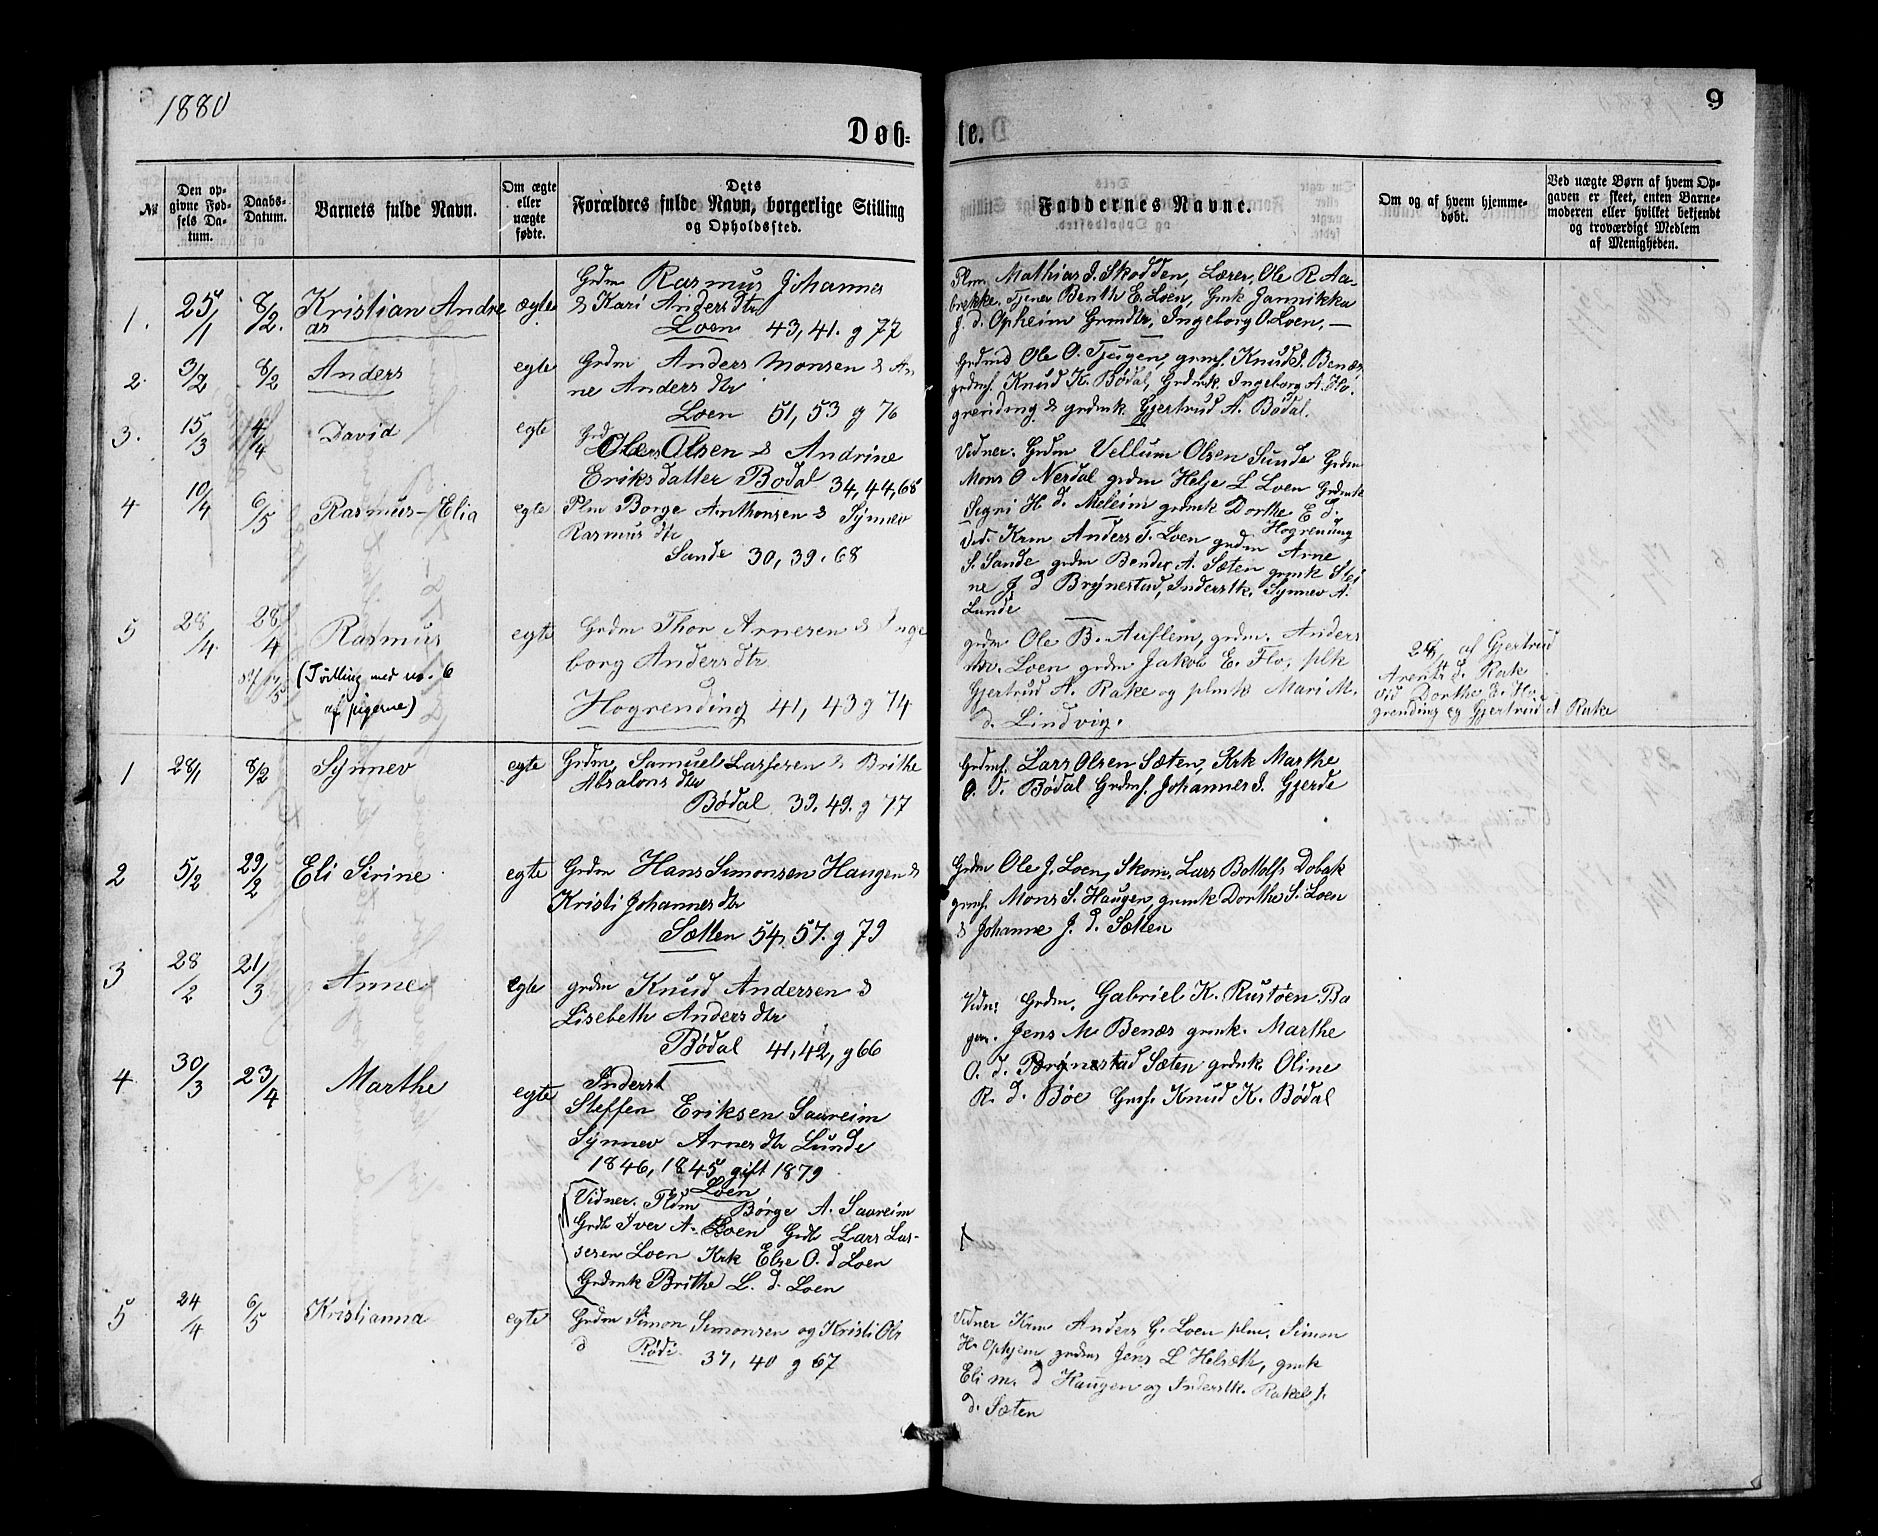 1880
9
Døb=
te.
№
Den op-
givne Fød-
sels Da-
tum.
Daabs-
Datum.
Barnets fulde Navn.
Om ægte
eller
uægte
fødte.
Dets
Forældres fulde Navn, borgerlige Stilling
og Opholdssted.
Faddernes Navne.
Om og af hvem hjemme-
døbt.
Ved uægte Børn af hvem Op-
gaven er skeet, enten Barne-
moderen eller hvilket bekjendt
og troværdigt Medlem
af Menigheden.
1. 25/1 8/2. Kristian Andre
as
ægte
Grdm Rasmus Johannes
& Kari Anders dtr
Loen 43, 41. g 77
Plm. Mathias J. Skodden, Lærer, Ole R. Aa-
brekke. Tjener Benth E. Loen, Gmk Jannikka
J. d. Opheim Grmdtr, Ingeborg O. Loen. —
2. 3/2 8/2 Anders egte
Grdm Anders Monsen & An
ne Anders dtr
Loen 51, 53 g 76
Grdmd Ole O. Tjugen, grmf. Knud J. Benæs,
grdmf. Knud K. Bødal, Grdmk Ingeborg A. Ho-
grending & grdmk Gjertrud A. Bødal.
3. 15/3 4/4 David egte
Grdm
Ole Olsen & Andrine
Eriksdatter Bodal 34, 44, 68
Vidner. Grdm Vellum Olsen Sunde Grdm
Mons O Nesdal grdm Helje L Loen Grdmk
Segni H d. Meleim grdmk Dorthe E d.
Hogrending
4 10/4 6/5 Rasmus-Elia egte
Plm Børge Anthonsen & Synnev
Rasmus dtr
Sande 30, 39. 68
Vid. Krm Anders T. Loen grdm Arne
S. Sande grdm Bendix A. Sæten grmk Stei
ne J d Brynestad, Inderstk. Synnev A.
Lunde
5 28/4 28/4 Rasmus egte
17/5
(Tvilling med no. 6
af pigerne)
Grdm Thor Arnesen & Inge
borg Anders dtr
Hogrending 41, 43 g 74
grdm Ole B. Auflem, grdm. Anders
M. Loen grdm Jakob E. Flo, plk
Gjertrud A. Rake og plmk Mari M.
d. Lindvig.
28/4 af Gjertrud
Arents d. Rake
Vid Dorthe E. Ho-
grending og Gjertrud A Rake
1 28/1 8/2 Synnev egte
Grdm, Samuel Larsesen & Brithe
Absalons dtr
Bødal 39. 49. g 77
Grdmf. Lars Olsen Sæten, Krk Marthe
O. d. Bødal Grdmf. Johannes J. Gjerde
2 5/2 29/2 Eli Sirine egte
Grdm Hans Simonsen Haugen &
Kristi Johannes dtr
Sætten 54, 57. g 79
Grdm Ole J. Loen, Skom, Lars Bottolfs Dobak
grmf. Mons S. Haugen, grmk Dorthe S. Loen
& Johanne J. d. Sætten
3 28/2 21/3 Anne egte
grdm Knud Andersen &
Lisebeth Anders dtr
Bødal 41, 42, g 66
Vidn: Grdm. Gabriel K. Rustøen Ba
gm. Jens M Benæs grmk. Marthe
O. d. Brynestad Sæten grdmk Oline
R. d. Bøe Gmf. Knud K. Bødal
4 30/3 23/4 Marthe egte
Inderst
Steffen Eriksen Saureim
Synnev Arnes dtr Lunde
1846, 1845 gift 1879
Loen
Vidner. Pldm Børge A. Saureim
Grdb Iver A. Loen Grdb Lars Lar-
sesen Loen Krk Else O. d Loen
Grdmk Brithe L. d. Loen
5 24/4 6/5 Kristianna egte
Grdm Simon Simonsen og Kristi Ols
d Rødi
37, 40 g 67
Vidner Krm Anders G. Loen plm. Simon
H. Ophjem grdm Jens L Helseth, gmk
Eli M. d Haugen og Inderstk. Rakel J.
d. Sæten